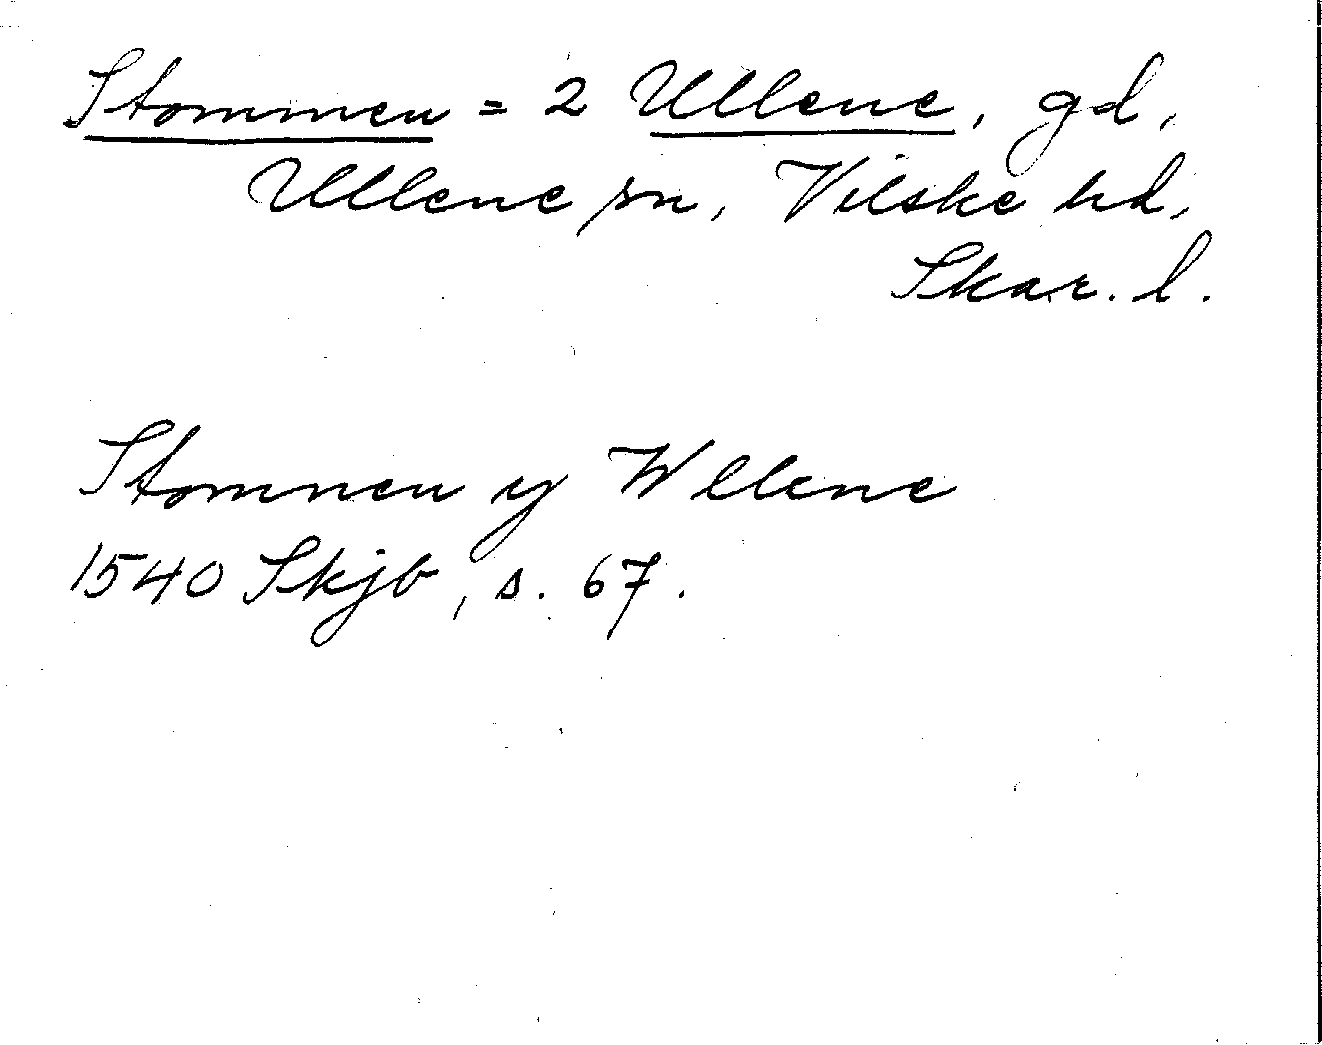 Stommen = 2 Ullene, gd,
Ullene sn, Vilske hd,
Skar. l.
Stomnen y Wllene
1540 Skjb, s. 67.